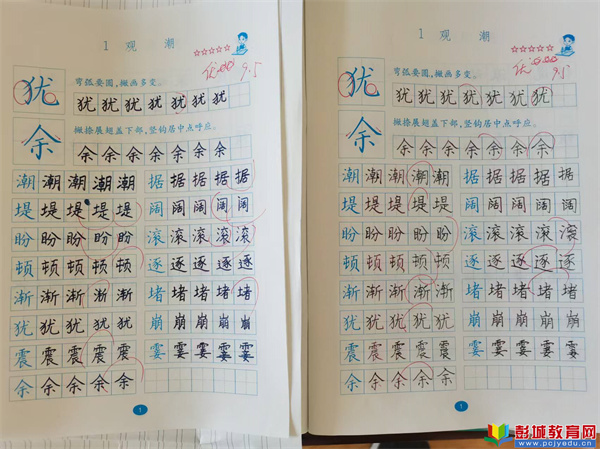 1 观 潮
优
9.5
犹
弯弧要圆,撇画多变。
犹 犹 犹 犹 犹 犹 犹
余
撇捺展翅盖下部,竖钩居中点呼应。
余 余 余 余 余 余 余
潮 潮 潮 潮 潮 据 据 据 据
堤 堤 堤 堤 堤 阔 阔 阔 阔
盼 盼 盼 盼 盼 滚 滚 滚 滚
顿 顿 顿 顿 顿 逐 逐 逐 逐
渐 渐 渐 渐 渐 堵 堵 堵 堵
犹 犹 犹 犹 犹 崩 崩 崩 崩
震 震 震 震 震 霎 霎 霎 霎
余 余 余 余 余
1
1 观 潮
优
9.5
犹
弯弧要圆,撇画多变。
犹 犹 犹 犹 犹 犹 犹
余
撇捺展翅盖下部,竖钩居中点呼应。
余 余 余 余 余 余 余
潮 潮 潮 潮 潮 据 据 据 据 据
堤 堤 堤 堤 堤 阔 阔 阔 阔 阔
盼 盼 盼 盼 盼 滚 滚 滚 滚 滚
顿 顿 顿 顿 顿 逐 逐 逐 逐 逐
渐 渐 渐 渐 渐 堵 堵 堵 堵 堵
犹 犹 犹 犹 犹 崩 崩 崩 崩 崩
震 震 震 震 震 霎 霎 霎 霎 霎
余 余 余 余 余
1
彭城教育网
www.pcjyedu.cn